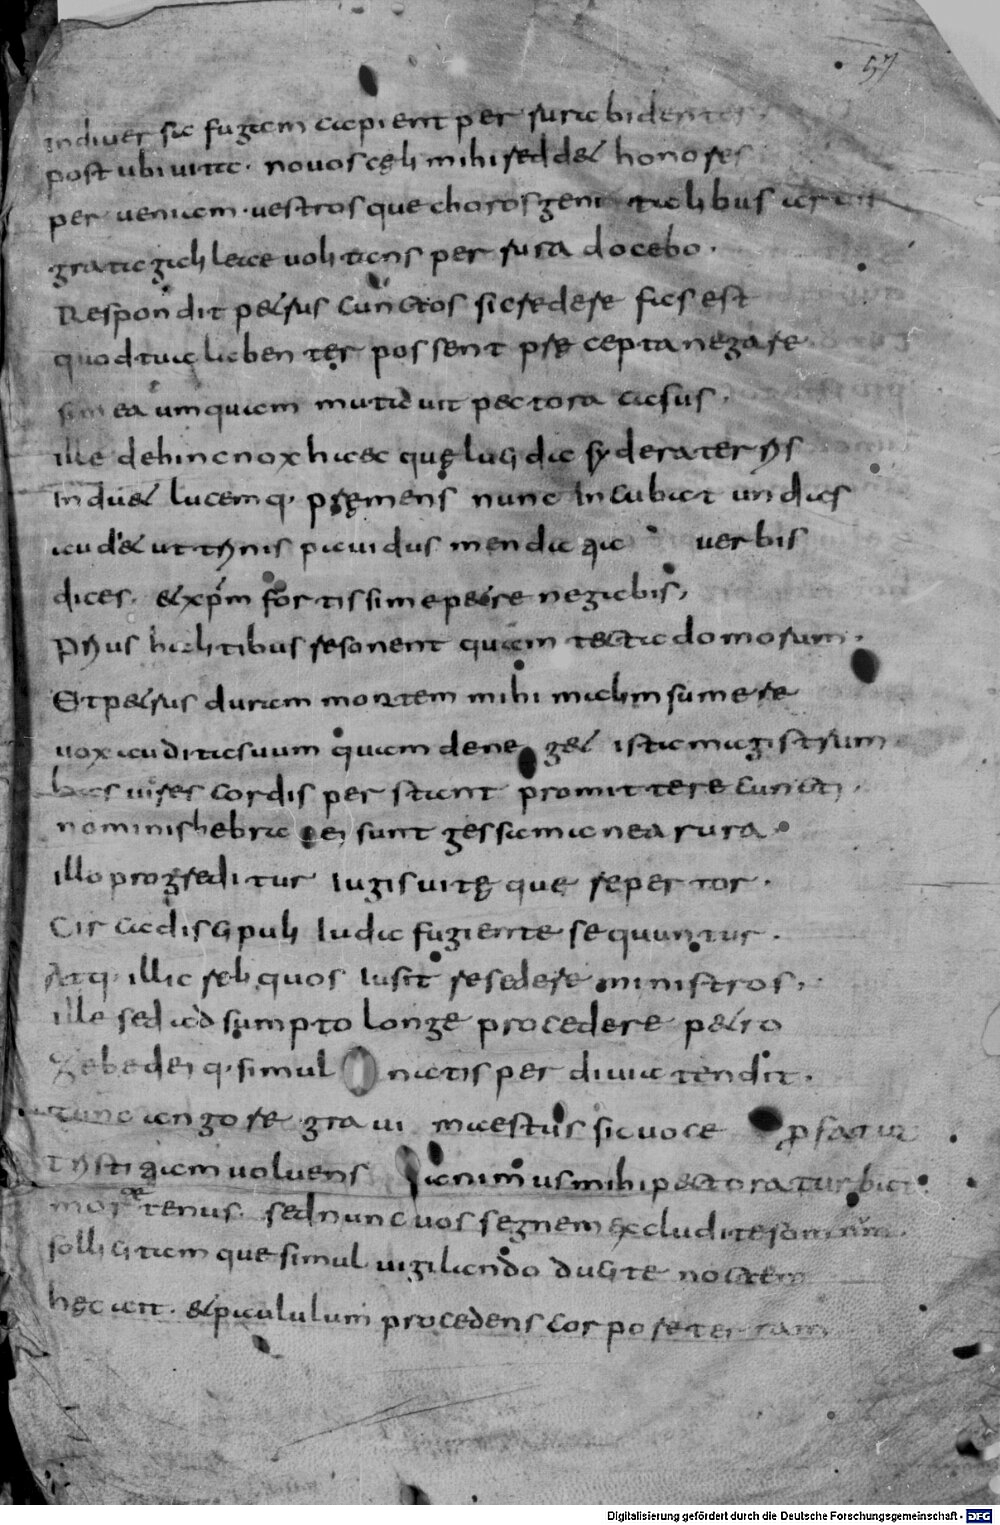 57
In diuersa fugam capient per rura bidentes.
post ubi uita. novos cęli mihi reddet honores
per ueniam. vestros que choros gentilibus aruis
gratae galileae uolitans per rura docebo.
Respondit petrus cunctos sic sedere fas est
quod tua labentes possent pręcepta negare
sim ea umquam mutabit pectora casus.
ille dehinc nox haec quę luci dia sydera terris
Induet lucemq. pręmens nunc Incubat undis
audet ut trinis pauidus mendacia verbis
dices. et xpm fortissime petre negabis,
prius halitibus resonent quam tecta domorum.
Et petrus duram mortem mihi malim sumere
uox audita suum quam deneget ista magistrum
has uires cordis perstant promittere cuncti.
nominis hebraei sunt gessamanea rura
illo progreditur Iugis uitę que repertor.
Circa discipuli Iuda fugiente sequuntur.
Atq. illic reliquos Iusit resedere ministros,
ille sed adsumpto longe procedere petro
Zebedeiq. simul natis per diuia tendit.
tunc angore graui maestus sic uoce profatur
tristiam uoluens animus mihi pectora turbat
mortetenus. sed nunc uos segnem excludite somnum.
sollicitam que simul uigilando ducite noctem
hęc ait. et paululum procedens corpore terram
Digitalisierung gefördert durch die Deutsche Forschungsgemeinschaft - DFG